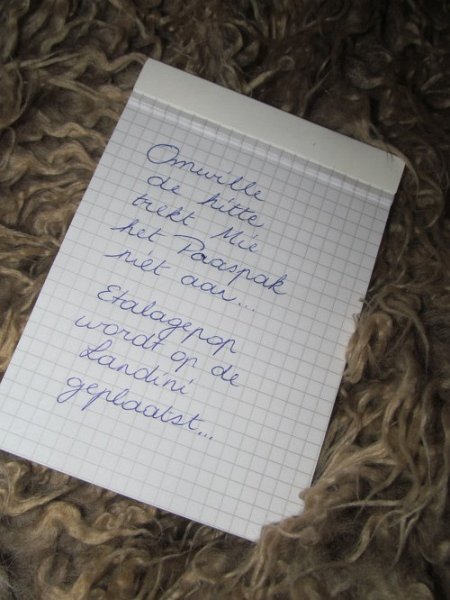 Omwille
de hitte
trekt Mie
het Paaspak
niet aan...
Etalagepop
wordt op de
Landini
geplaatst...